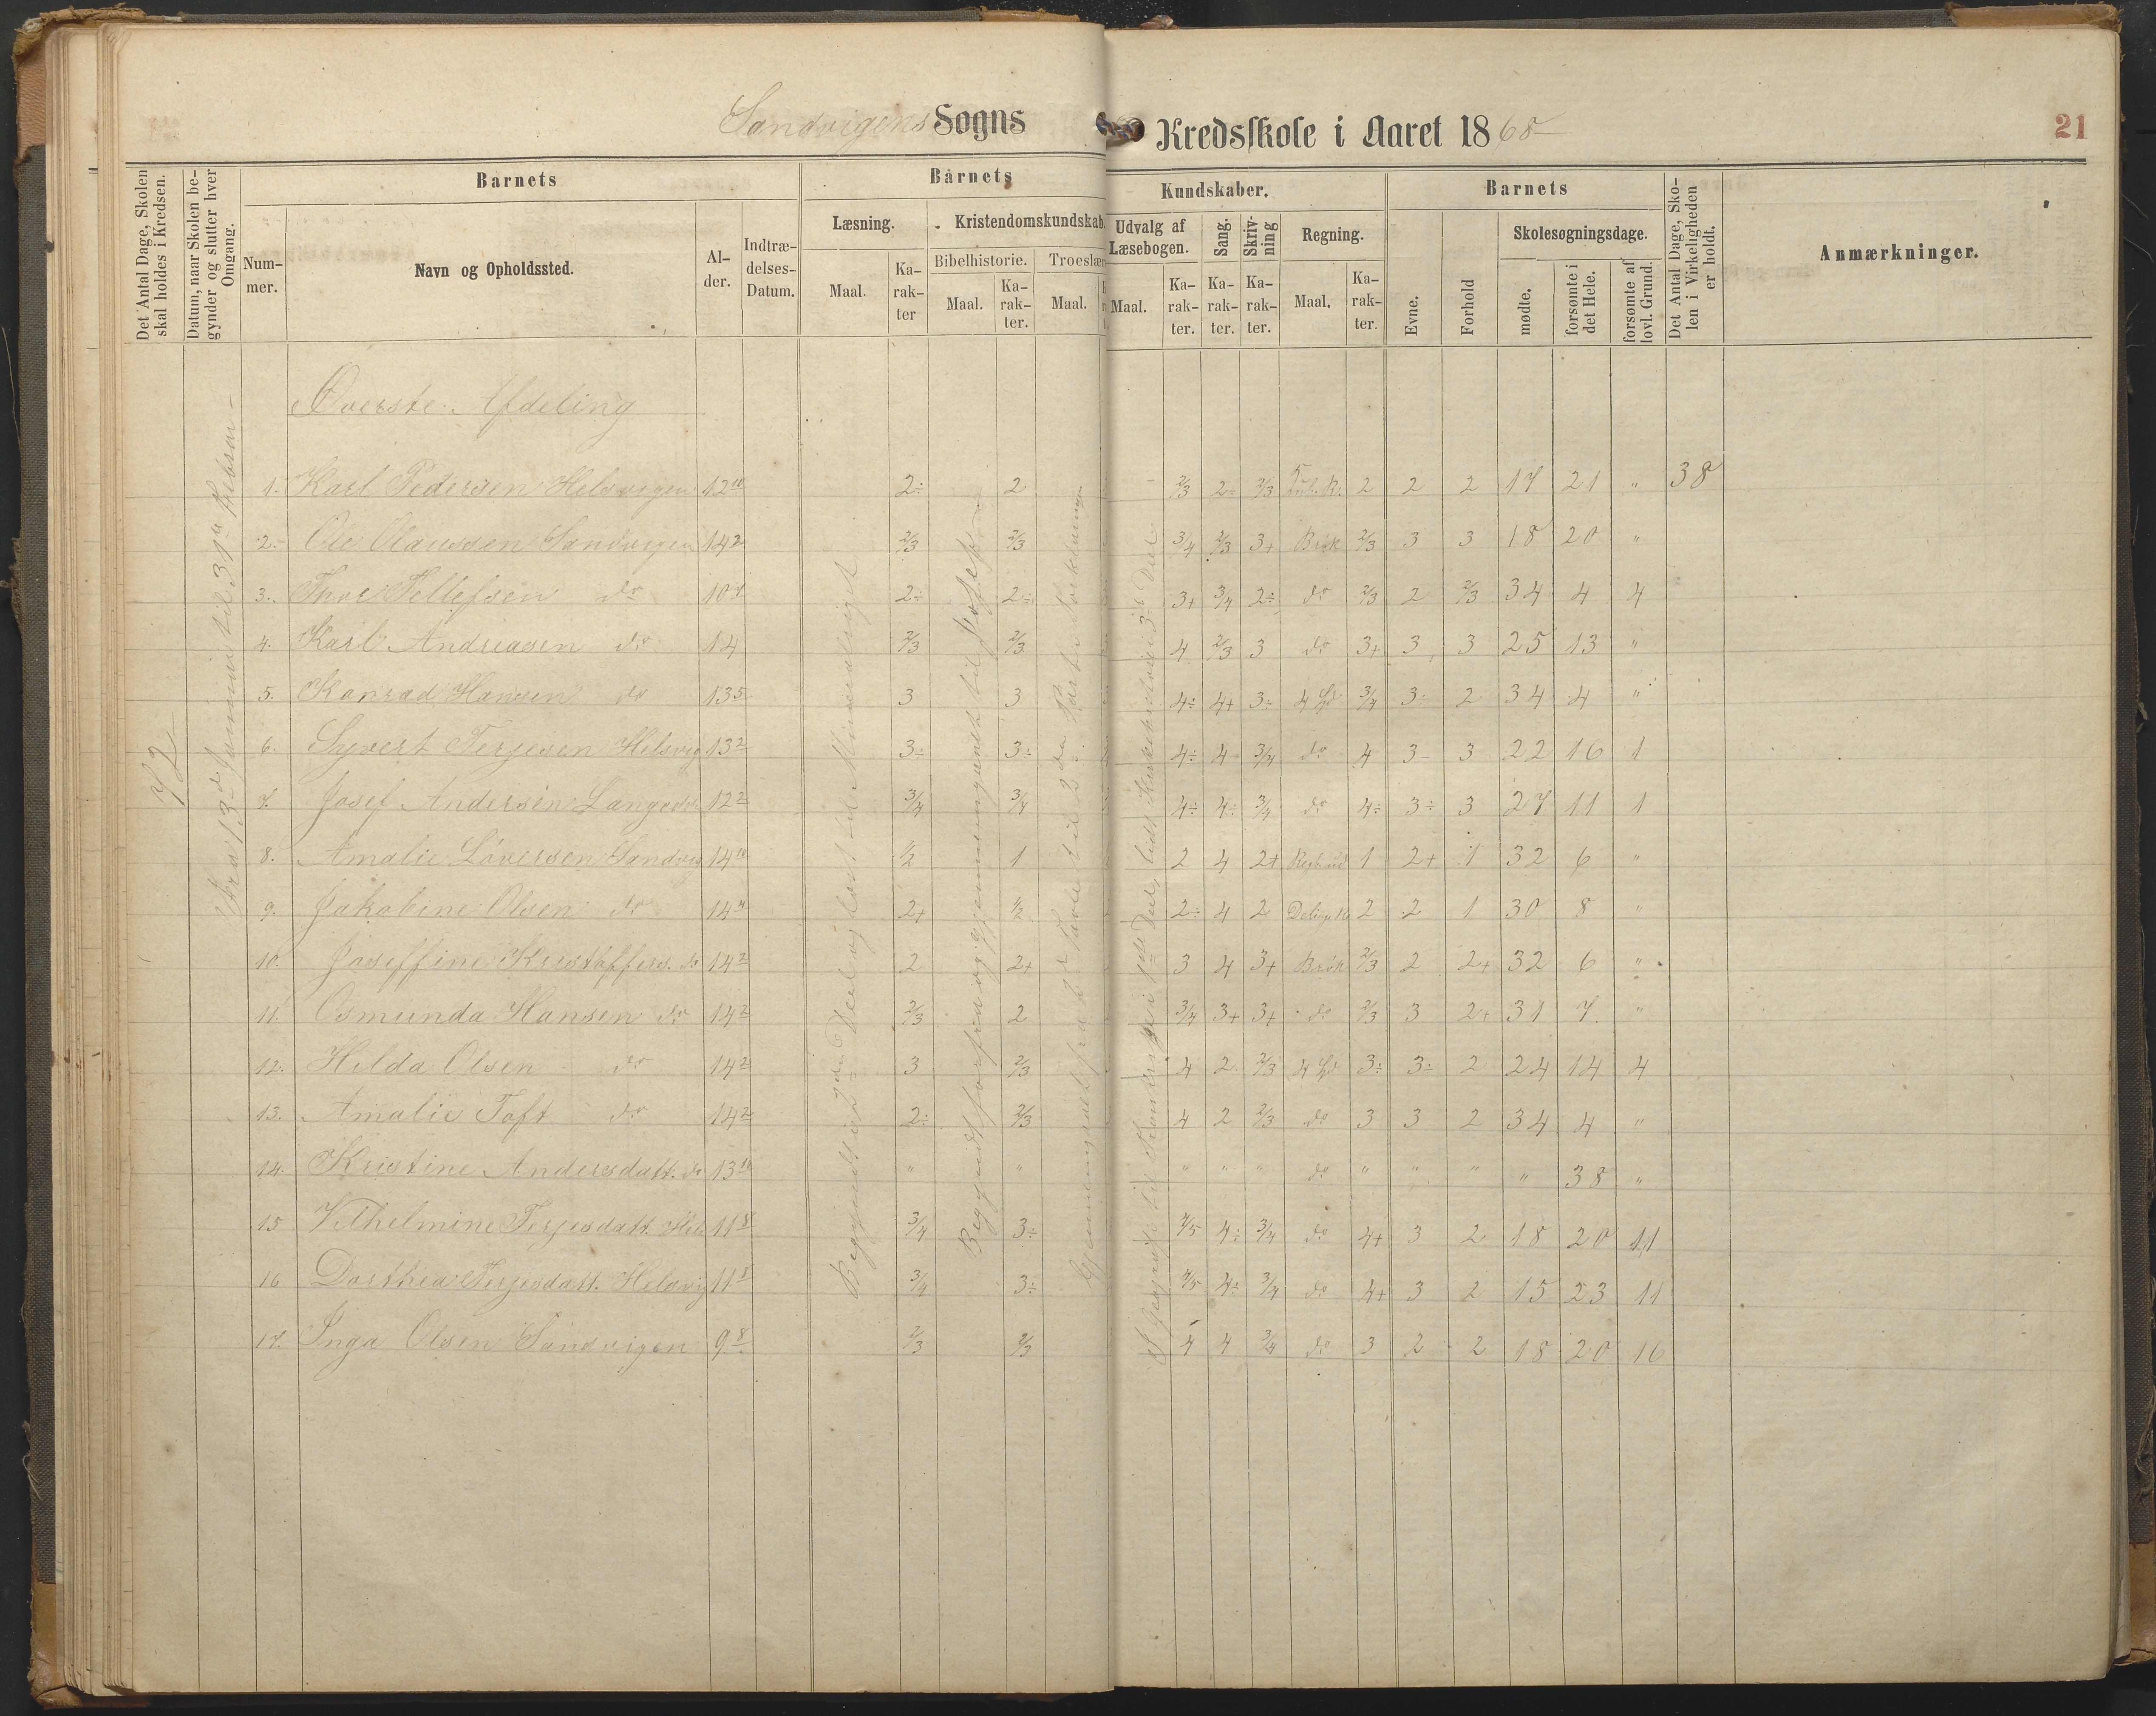 Sandvigens Sogns Kredsskole i Aaret 1868
21
Det Antal Dage, Skolen skal holdes i Kredsen.
Datum, naar Skolen begynder og slutter hver Omgang.
Barnets
Nummer.
Navn og Opholdssted.
Alder.
Indtrædelses-Datum.
Barnets Kundskaber.
Læsning.
Maal.
Karakter
Kristendomskundskab.
Bibelhistorie.
Maal.
Karakter.
Troeslær
Maal.
Udvalg af Læsebogen.
Maal.
Karakter.
Sang.
Karakter.
Skrivning
Karakter.
Regning.
Maal.
Karakter.
Barnets
Evne.
Forhold
Skolesøgningsdage.
mødte.
forsømte i det Hele.
forsømte af lovl. Grund.
Det Antal Dage, Skolen i Virkeligheden er holdt.
Anmærkninger.
Øverste Afdeling
72
1. Karl Pedersen Helsvigen 12 10 2÷ 2 2/3 2÷ 2/3 2 2 2 17 21 " 38
2. Ole Olaussen Sandvigen 14 2 2/3 2/3 3/4 2/3 3+ Brøk 2/3 3 3 18 20 "
3. Thor Tellefsen do 10 7 2÷ 2÷ 3+ 3/4 2÷ do 2/3 2 2/3 34 4 4
4. Karl Andreasen do 14 2/3 2/3 4 2/3 3 do 3+ 3 3 25 13 "
5. Konrad Hansen do 13 5 3 3 4÷ 4+ 3÷ 3/4 3÷ 2 34 4 "
6. Syvert Terjesen Helsvig 13 2 3÷ 3÷ 4÷ 4 3/4 do 4 3 3 22 16 1
7. Josef Andersen 12 2 3/4 3/4 4÷ 4÷ 3/4 do 4÷ 3÷ 3 27 11 1
8. Amalie Løversen Sandvig 14 10 1/2 1 2 4 2+ 1 2+ 1 32 6 "
9. Jakobine Olsen do 14 2+ 1/2 2÷ 4 2 2 2 1 30 8 "
10. Joseffine Kristoffers. do 14 2 2 2+ 3 4 3+ Brøk 2/3 2 2+ 32 6 "
11. Osmunda Hansen do 14 2 2/3 2 3/4 3+ 3+ do 2/3 3 2+ 31 7 "
12. Hilda Olsen do 14 2 3 2/3 4 2 2/3 3÷ 3÷ 2 24 14 4
13. Amalie Toft do 14 2 2÷ 2/3 4 2 2/3 do 3 3 2 34 4 "
14. Kristine Andersdatt. do 13 10 " " " " " do " " " " 38 "
15 Vilhelmine Terjesdatt. Hels 11 8 3/4 3÷ 4/5 4÷ 3/4 do 4+ 3 2 18 20 11
16 Dorthea Terjesdatt. Helsvig 11 8 3/4 3÷ 4/5 4÷ 3/4 do 4+ 3 2 15 23 11
17. Inga Olsen Sandvigen 9 8 2/3 2/3 4 4 3/4 do 3 2 2 18 20 16